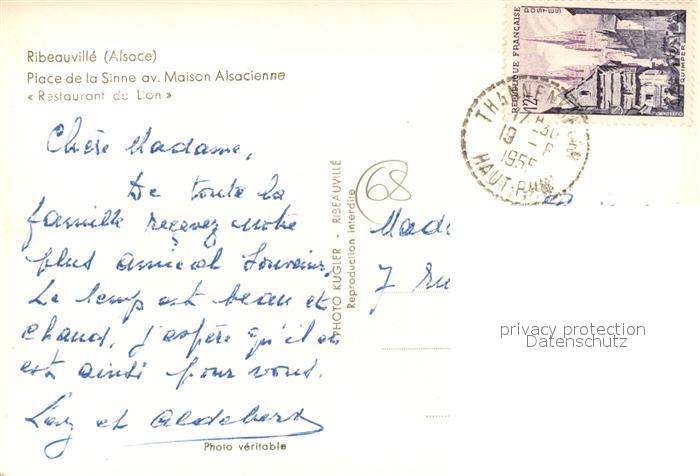 Ribeauvillé (Alsace)
Place de la Sinne av. Maison Alsacienne
« Restaurant du Lion »
Chère Madame,
De toute la
famille recevez notre
plus amical Souvenir.
Le temp est beau et
chaud, j'espère qu'il en
est ainsi pour vous.
et Aldebert
Photo véritable
PHOTO KUGLER - RIBEAUVILLÉ
Reproduction interdite
68
REPUBLIQUE FRANÇAISE
POSTES
12F
QUIMPER
17 H
19 -8
1955
HAUT-RHIN
Mad
7 Ru
privacy protection
Datenschutz